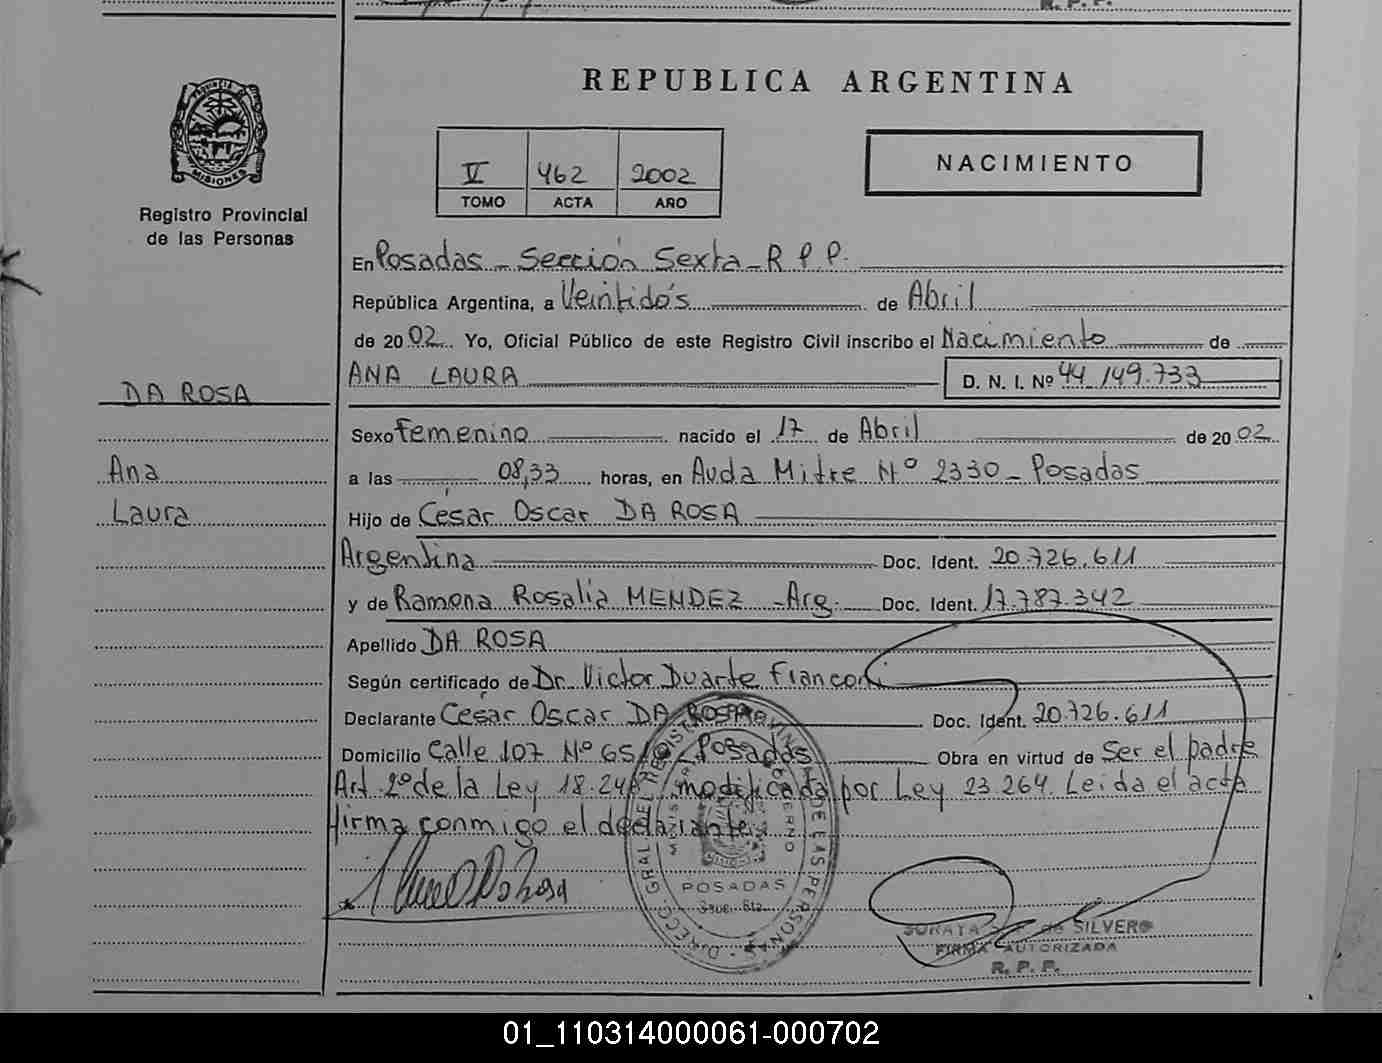 R. P. P.
REPUBLICA ARGENTINA
Provincia de
MISIONES
Registro Provincial
de las Personas
V 462 2002
TOMO ACTA AÑO
NACIMIENTO
En Posadas - Sección Sexta - R P.P.
República Argentina, a Veintidós de Abril
de 2002 Yo, Oficial Público de este Registro Civil inscribo el Nacimiento de
ANA LAURA D. N. I. Nº 44.149.733
DA ROSA
Ana
Laura
Sexo femenino nacido el 17 de Abril de 2002
a las 08,33 horas, en Avda Mitre Nº 2330 - Posadas
Hijo de César Oscar DA ROSA
Argentina Doc. Ident. 20.726.611
y de Ramona Rosalia MENDEZ - Arg. Doc. Ident. 17.787.342
Apellido DA ROSA
Según certificado de Dr. Victor Duarte
Declarante César Oscar DA ROSA Doc. Ident. 20.726.611
Domicilio Calle 107 Nº Posadas Obra en virtud de Ser el padre
Art. 2º de la Ley 18.248 modificada por Ley 23.264. Leida el acta
firma conmigo el declarante
DIRECC. GRAL. DEL REGISTRO PROVINCIAL DE LAS PERSONAS
POSADAS
SORAYA de SILVERO
FIRMA AUTORIZADA
R. P. P.
01_110314000061-000702